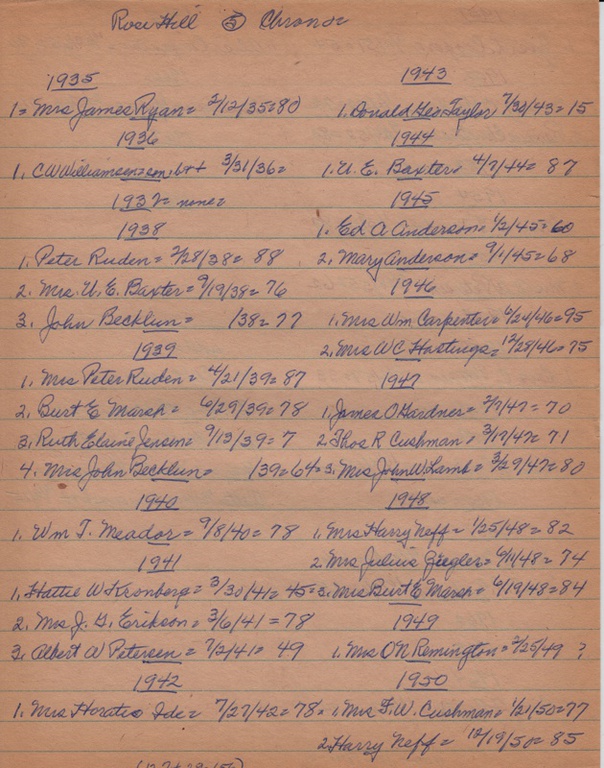 Rose Hill ⑤ Chronor
1935
1 = Mrs James Ryan = 2/12/35 = 80
1936
1. C W Williamsen = 3/31/36 =
1937 = none =
1938
1. Peter Ruden = 2/28/38 = 88
2. Mrs. U. E. Baxter = 9/19/38 = 76
3. John Becklun = /38 = 77
1939
1. Mrs Peter Ruden = 4/21/39 = 87
2. Burt E Marsh = 6/29/39 = 78
3. Ruth Elaine Jensen = 9/13/39 = 7
4. Mrs John Becklun = /39 = 64 =
1940
1. Wm T. Meador = 9/8/40 = 78
1941
1. Hattie W Kronberg = 3/30/41 = 45 =
2. Mrs J. G. Erikson = 3/6/41 = 78
3. Albert W Petersen = 7/2/41 = 49
1942
1. Mrs Horatio Ide = 7/27/42 = 78 =
1943
1. Donald Geo Taylor 7/30/43 = 15
1944
1. U. E. Baxter 4/7/44 = 87
1945
1. Ed A Anderson = 1/2/45 = 60
2. Mary Anderson = 9/1/45 = 68
1946
1. Mrs Wm. Carpenter = 6/24/46 = 95
2. Mrs W C Hastings = 12/28/46 = 75
1947
1. James O Gardner = 2/7/47 = 70
2. Thos R Cushman = 3/17/47 = 71
3. Mrs John W. Lamb = 3/29/47 = 80
1948
1. Mrs Harry Neff = 1/25/48 = 82
2. Mrs Julius Ziegler = 6/11/48 = 74
3. Mrs Burt E Marsh = 6/19/48 = 84
1949
1. Mrs O N Remington = 2/25/49 ?
1950
1. Mrs F. W. Cushman = 1/21/50 = 77
2. Harry Neff = 12/19/50 = 85